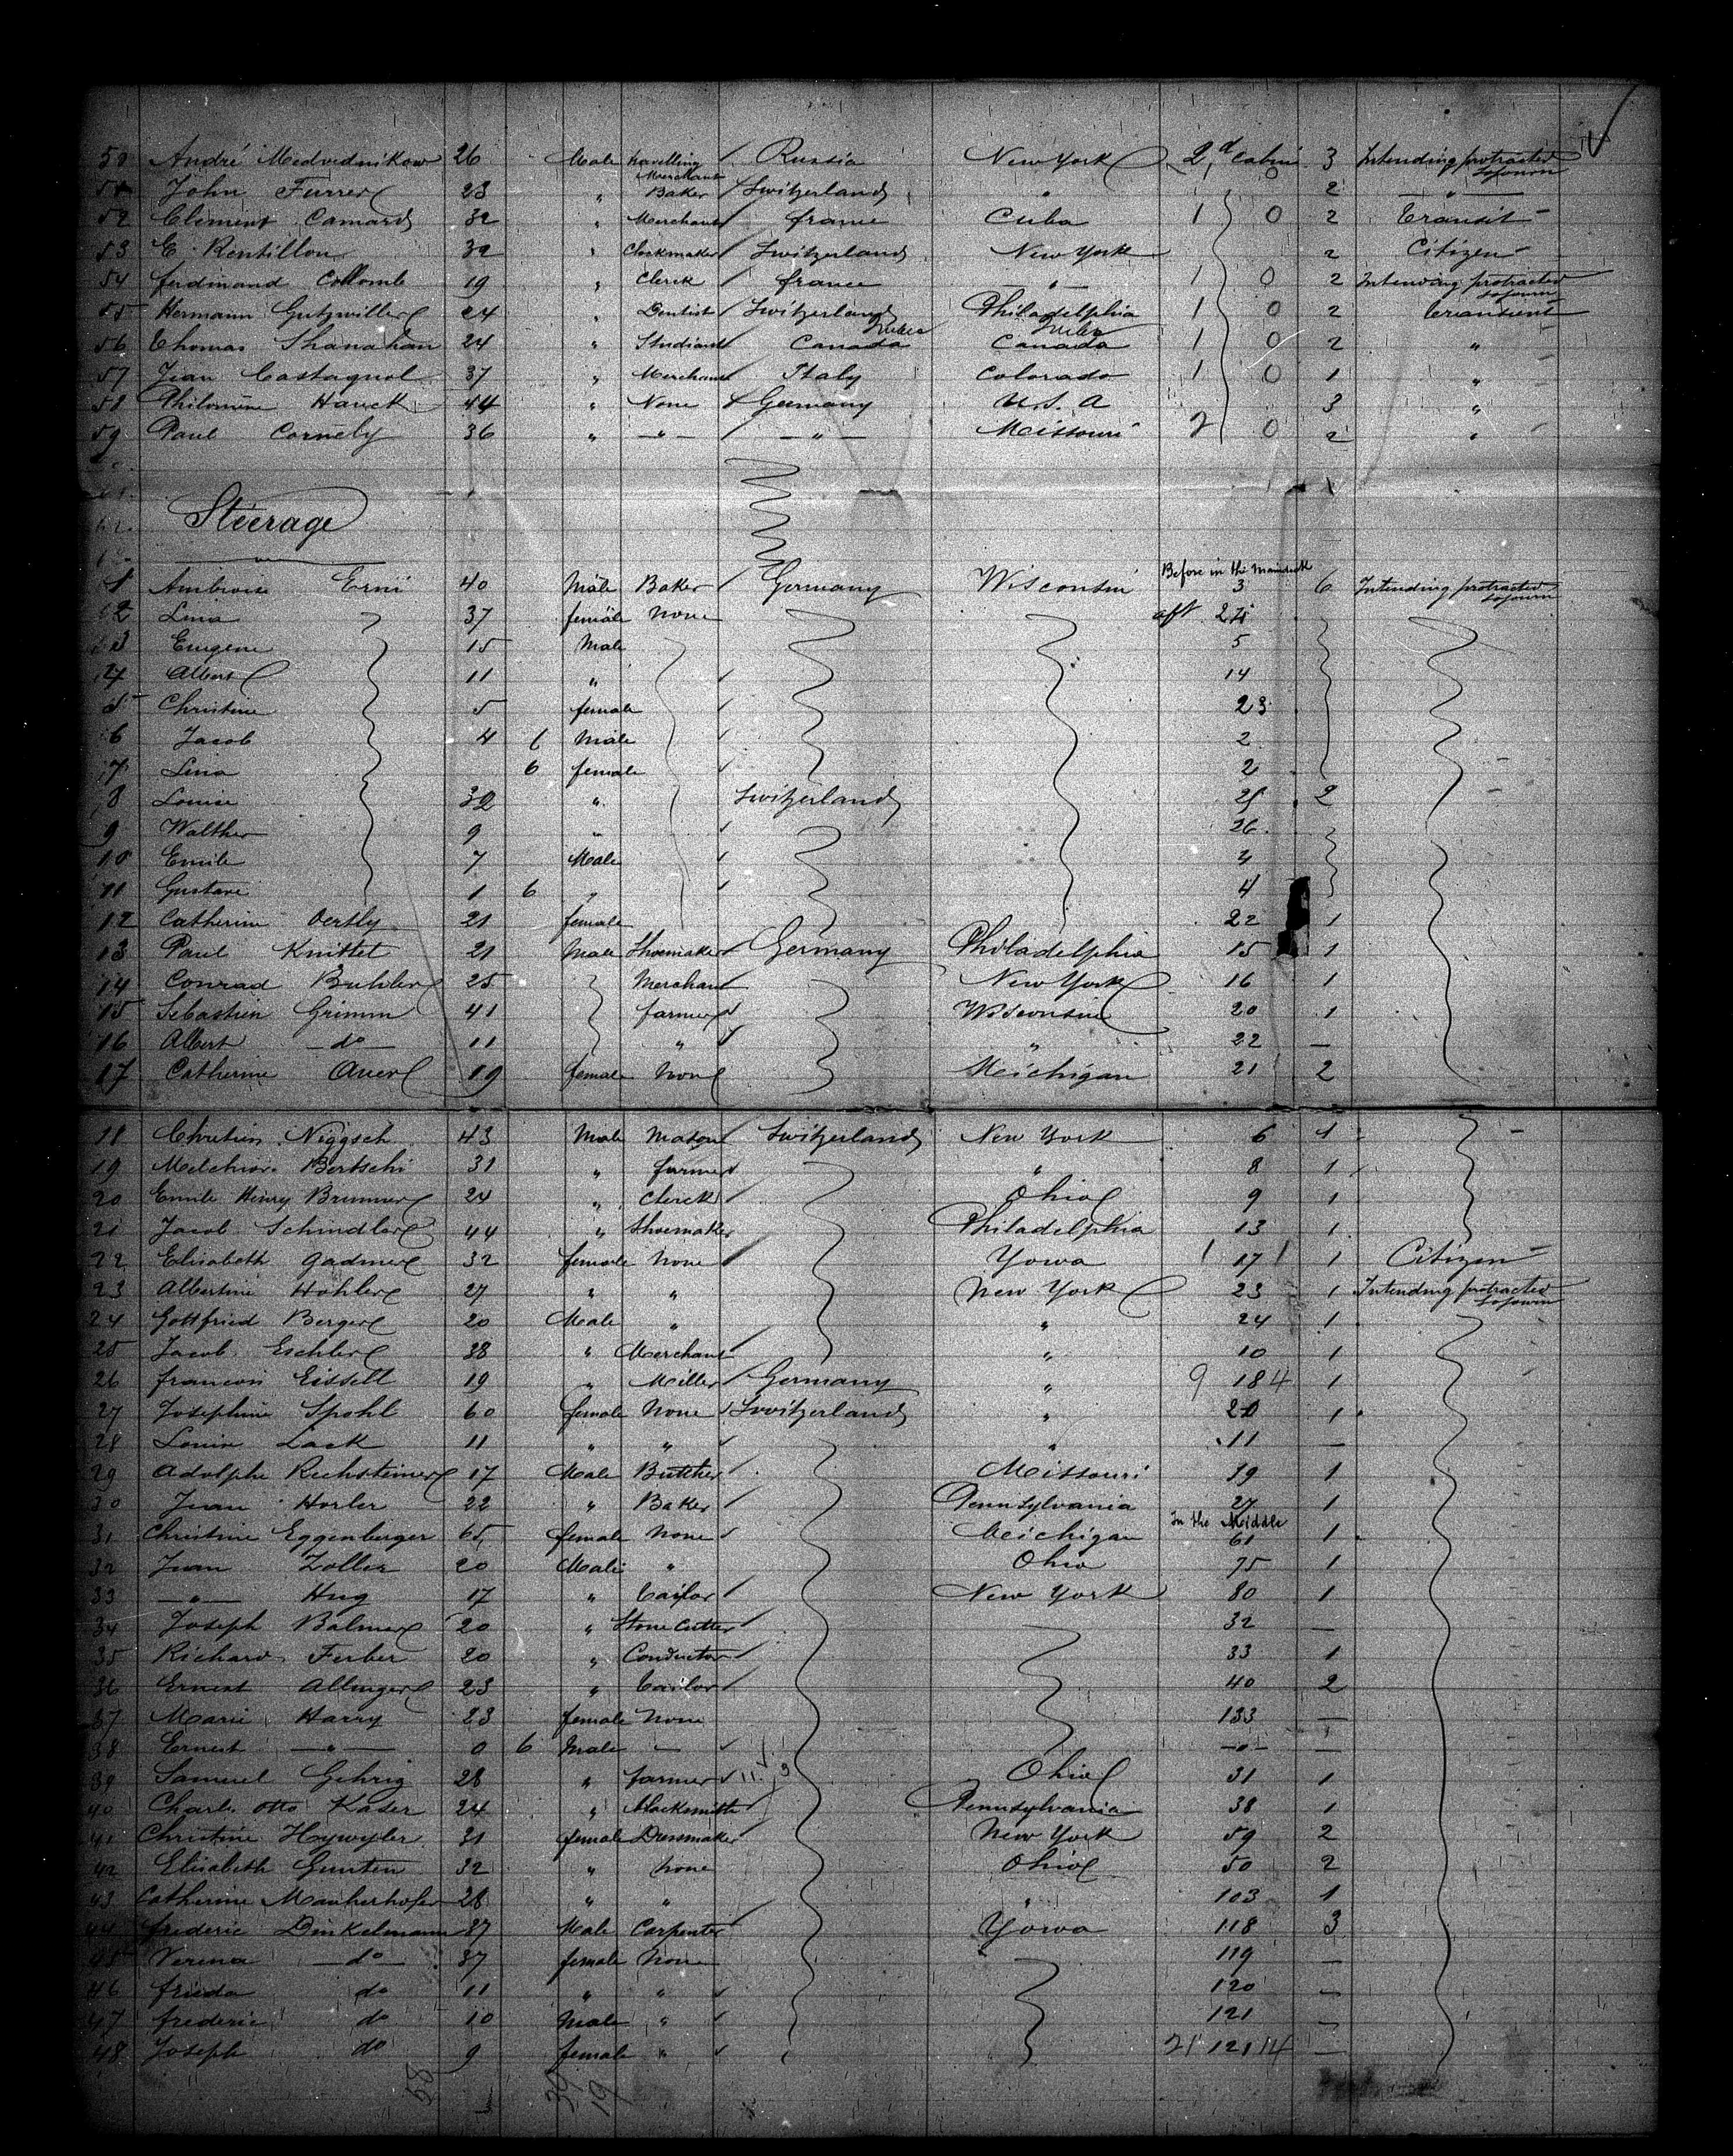 50 André Medvednikow 26 Male travelling Merchant Russia New York 2d cabin 0 3 Intending protracted sojourn
51 John Furrer 23 " Baker Switzerland " 2 "
52 Clement Camard 32 " Merchant france Cuba 1 0 2 Transit
53 E. Rentillon 32 " Clockmaker Switzerland New York 2 Citizen
54 ferdinand Collomb 19 " Clerck france " 1 0 2 Intending protracted sojourn
55 Hermann Gutzwiller 24 " Dentist Switzerland Philadelphia 1 0 2 Transient
56 Thomas Shanahan 24 " Studiant Canada Canada 1 0 2 "
57 Jean Castagnol 37 " Merchant Italy Colorado 1 0 1 "
58 Philomène Hauck 44 " None Germany U.S.A 3 "
59 Paul Cornely 36 " " " Missouri 2 0 2 "
Steerage
1 Ambroise Erni 40 Male Baker Germany Wisconsin Before in the Maindeck 3 6 Intending protracted sojourn
2 Lina 37 female None aft
3 Eugene 15 Male 5
4 Albert 11 " 14
5 Christine 5 female 23
6 Jacob 4 Male 2
7 Lina 6 female 2
8 Louise 32 " Switzerland 25 2
9 Walther 9 " 26
10 Emile 7 Male
11 Gustave 1 6 " 4
12 Catherine Oertly 21 female 22 1
13 Paul Knittel 21 Male Shoemaker Germany Philadelphia 15 1
14 Conrad Buhler 25 Merchant New York 16 1
15 Sebastien Grimm 41 farmer Wisconsin 20 1
16 Albert do 11 " " 22 —
17 Catherine Auer 19 female None Michigan 21 2
18 Chretien Niggsch 43 Male Mason Switzerland New York 6 1
19 Melchior Bertschi 31 " farmer " 8 1
20 Emile Henry Brunner 24 " Clerck Ohio 9 1
21 Jacob Schindler 44 " Shoemaker Philadelphia 13 1
22 Elisabeth Gadmer 32 female None Yowa 17 1 Citizen
23 Albertine Hohler 27 " " New York 23 1 Intending protracted sojourn
24 Gottfried Berger 20 Male " " 24 1
25 Jacob Eschler 38 " Merchant " 10 1
26 francois Eisselt 19 " Miller Germany " 9 18 4 1
27 Josephine Spohl 60 female None Switzerland " 20 1
28 Louise Lack 11 " " " 11 —
29 Adolphe Richsteiner 17 Male Butcher Missouri 19 1
30 Jean Horler 22 " Baker Pennsylvania 27 1
31 Christine Eggenberger 65 female None Michigan In the Middle 61 1
32 Jean Zoller 20 Male " Ohio 75 1
33 " Hug 17 " Tailor New York 80 1
34 Joseph Balmer 20 " Stone Cutter 32 —
35 Richard Ferber 20 " Conductor 33 1
36 Ernest Allinger 23 " Tailor 40 2
37 Marie Harry 23 female None 133 —
38 Ernest " 0 6 Male — " —
39 Samuel Gehrig 28 " farmer Ohio 31 1
40 Charles Otto Kaser 24 " Blacksmith Pennsylvania 38 1
41 Christine Hywyler 31 female Dressmaker New York 59 2
42 Elisabeth Gunten 32 " None Ohio 50 2
43 Catherine Mauherhofer 28 " " " 103 1
44 frederic Dinkelmann 37 Male Carpenter Yowa 118 3
45 Verena do 37 female None 119 —
46 frieda do 11 " " 120 —
47 frederic do 10 Male " 121 —
48 Joseph do 9 female " 21 121 14 —
58 39 19